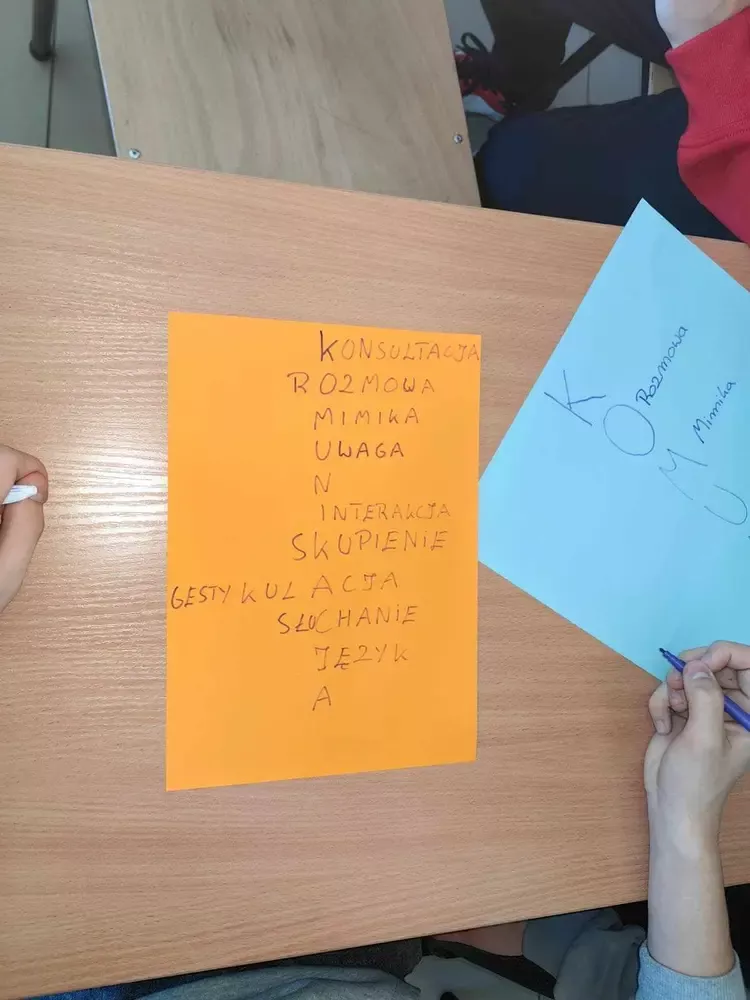 KONSULTACJA
ROZMOWA
MIMIKA
UWAGA
N
INTERAKCJA
SKUPIENIE
GESTYKULACJA
SŁUCHANIE
JĘZYK
A
K
O Rozmowa
M Mimika
U